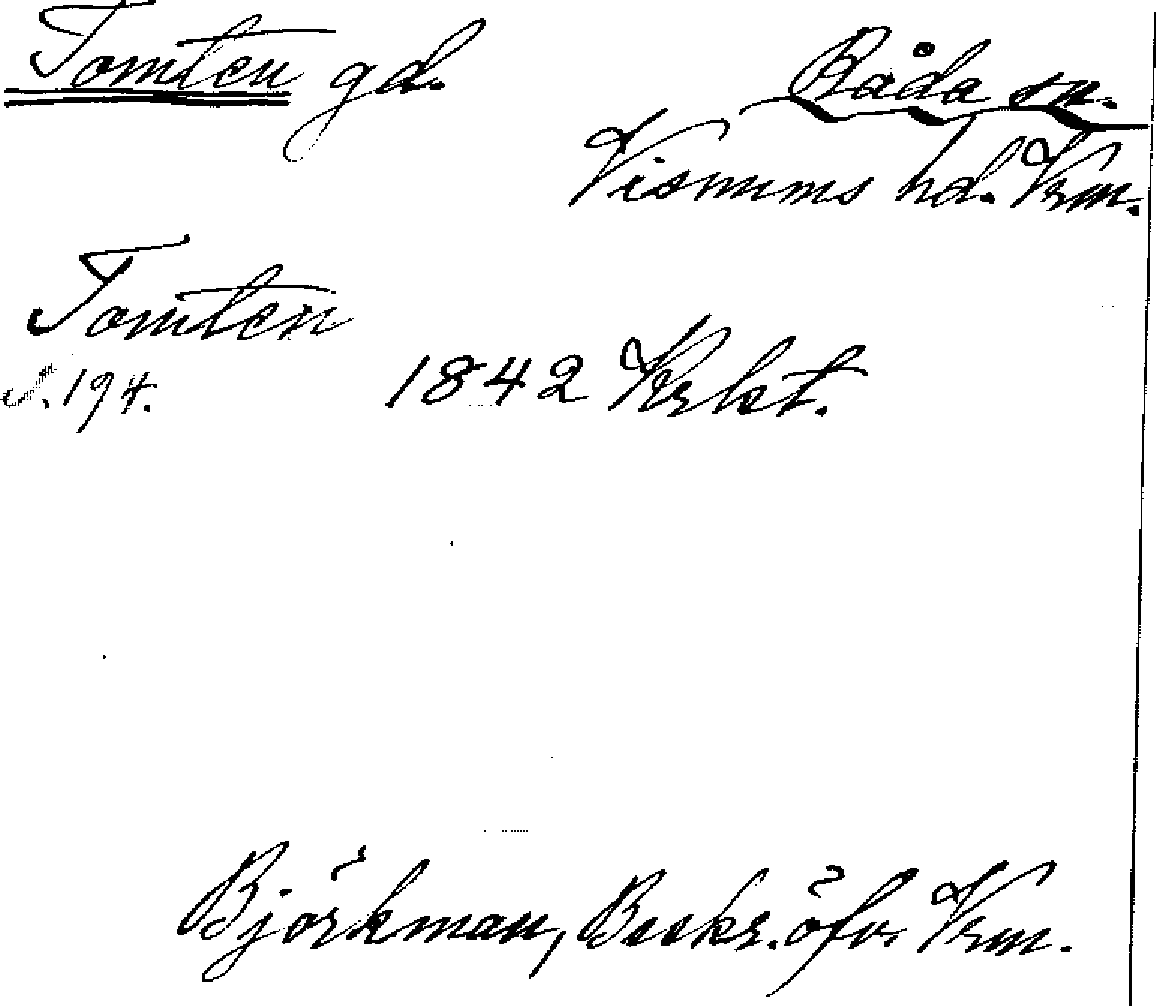 Tomten gd.
Råda sn.
Visnums hd. Vrm.
Tomten
s. 194.
1842 Krkt.
Björkman, Beskr. öfv. Vrm.